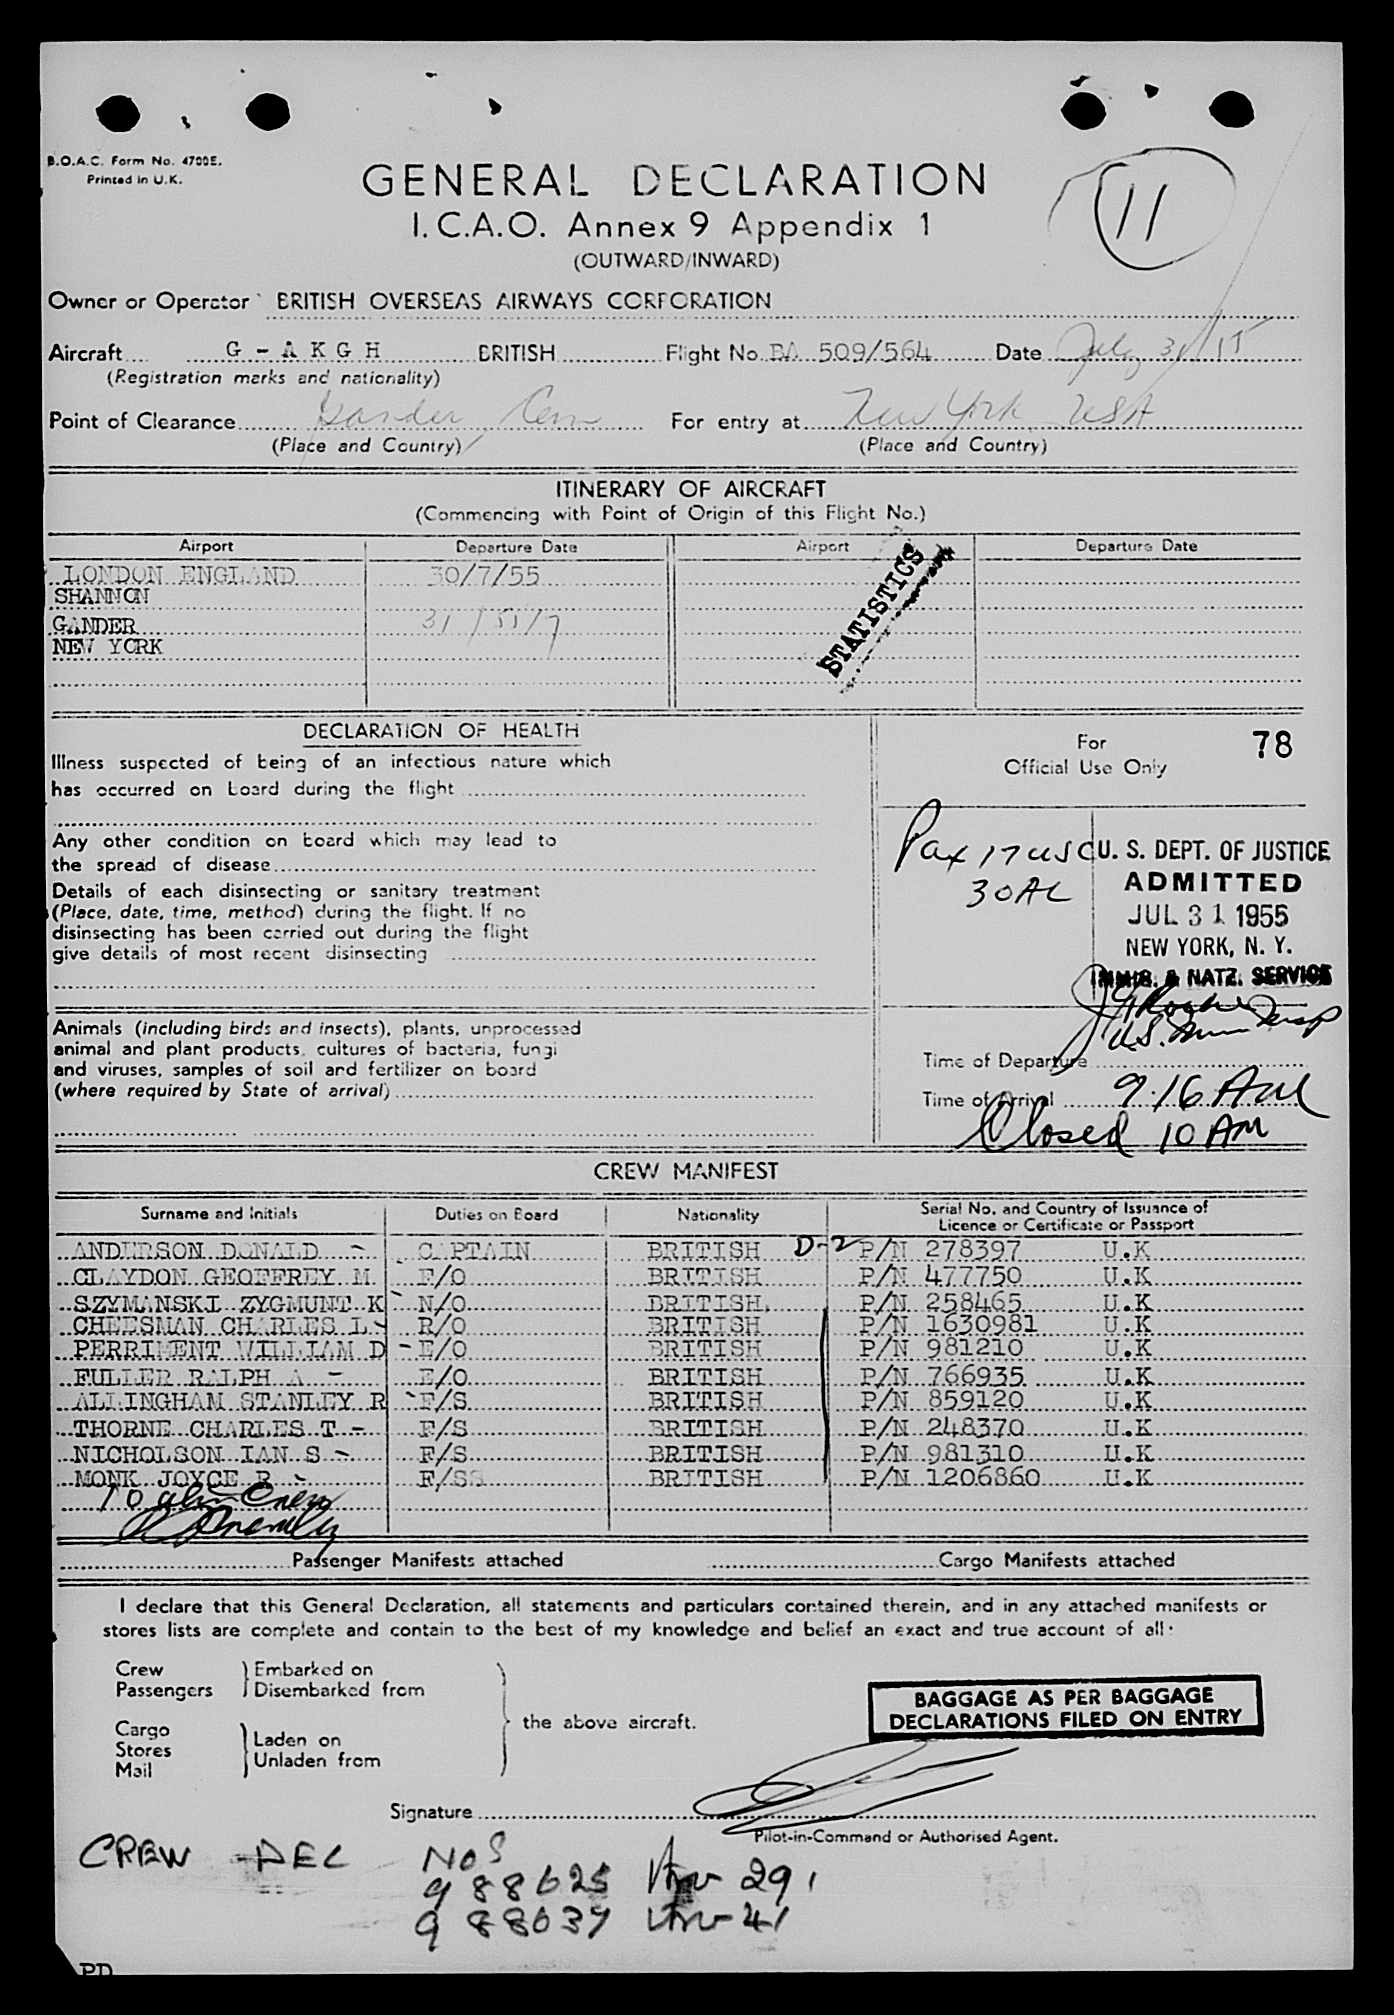 B.O.A.C. Form No. 4700E.
Printed in U.K.
GENERAL DECLARATION
I.C.A.O. Annex 9 Appendix 1
(OUTWARD/INWARD)
11
Owner or Operator BRITISH OVERSEAS AIRWAYS CORPORATION
Aircraft G - A K G H BRITISH Flight No. BA 509/564 Date July 31/55
(Registration marks and nationality)
Point of Clearance Gander For entry at New York USA
(Place and Country) (Place and Country)
ITINERARY OF AIRCRAFT
(Commencing with Point of Origin of this Flight No.)
Airport Departure Date Airport Departure Date
LONDON ENGLAND 30/7/55
SHANNON
GANDER
NEW YORK
STATISTICS
DECLARATION OF HEALTH
Illness suspected of being of an infectious nature which
has occurred on board during the flight
Any other condition on board which may lead to
the spread of disease
Details of each disinsecting or sanitary treatment
(Place, date, time, method) during the flight. If no
disinsecting has been carried out during the flight
give details of most recent disinsecting
Animals (including birds and insects), plants, unprocessed
animal and plant products, cultures of bacteria, fungi
and viruses, samples of soil and fertilizer on board
(where required by State of arrival)
For 78
Official Use Only
Pax 17 USC
30 AL
U. S. DEPT. OF JUSTICE
ADMITTED
JUL 31 1955
NEW YORK, N. Y.
IMMIG. & NATZ. SERVICE
Time of Departure
Time of Arrival 9.16 AM
Closed 10 AM
CREW MANIFEST
Surname and Initials Duties on Board Nationality Serial No. and Country of Issuance of
Licence or Certificate or Passport
ANDERSON DONALD - CAPTAIN BRITISH D-2 P/N 278397 U.K
CLAYDON GEOFFREY M F/O BRITISH P/N 477750 U.K
SZYMANSKI ZYGMUNT K N/O BRITISH. P/N 258465 U.K
CHEESMAN CHARLES L R/O BRITISH P/N 1630981 U.K
PERRIMENT WILLIAM D - E/O BRITISH P/N 981210 U.K
FULLER RALPH A - E/O BRITISH P/N 766935 U.K
ALLINGHAM STANLEY R F/S BRITISH P/N 859120 U.K
THORNE CHARLES T - F/S BRITISH P/N 248370 U.K
NICHOLSON IAN S - F/S BRITISH P/N 981310 U.K
MONK JOYCE R - F/SS BRITISH P/N 1206860 U.K
10 alien Crew
Passenger Manifests attached Cargo Manifests attached
I declare that this General Declaration, all statements and particulars contained therein, and in any attached manifests or
stores lists are complete and contain to the best of my knowledge and belief an exact and true account of all:
Crew Embarked on
Passengers Disembarked from
the above aircraft.
Cargo Laden on
Stores Unladen from
Mail
BAGGAGE AS PER BAGGAGE
DECLARATIONS FILED ON ENTRY
Signature
Pilot-in-Command or Authorised Agent.
CREW DEC NOS
988625 291
988637 41
PD